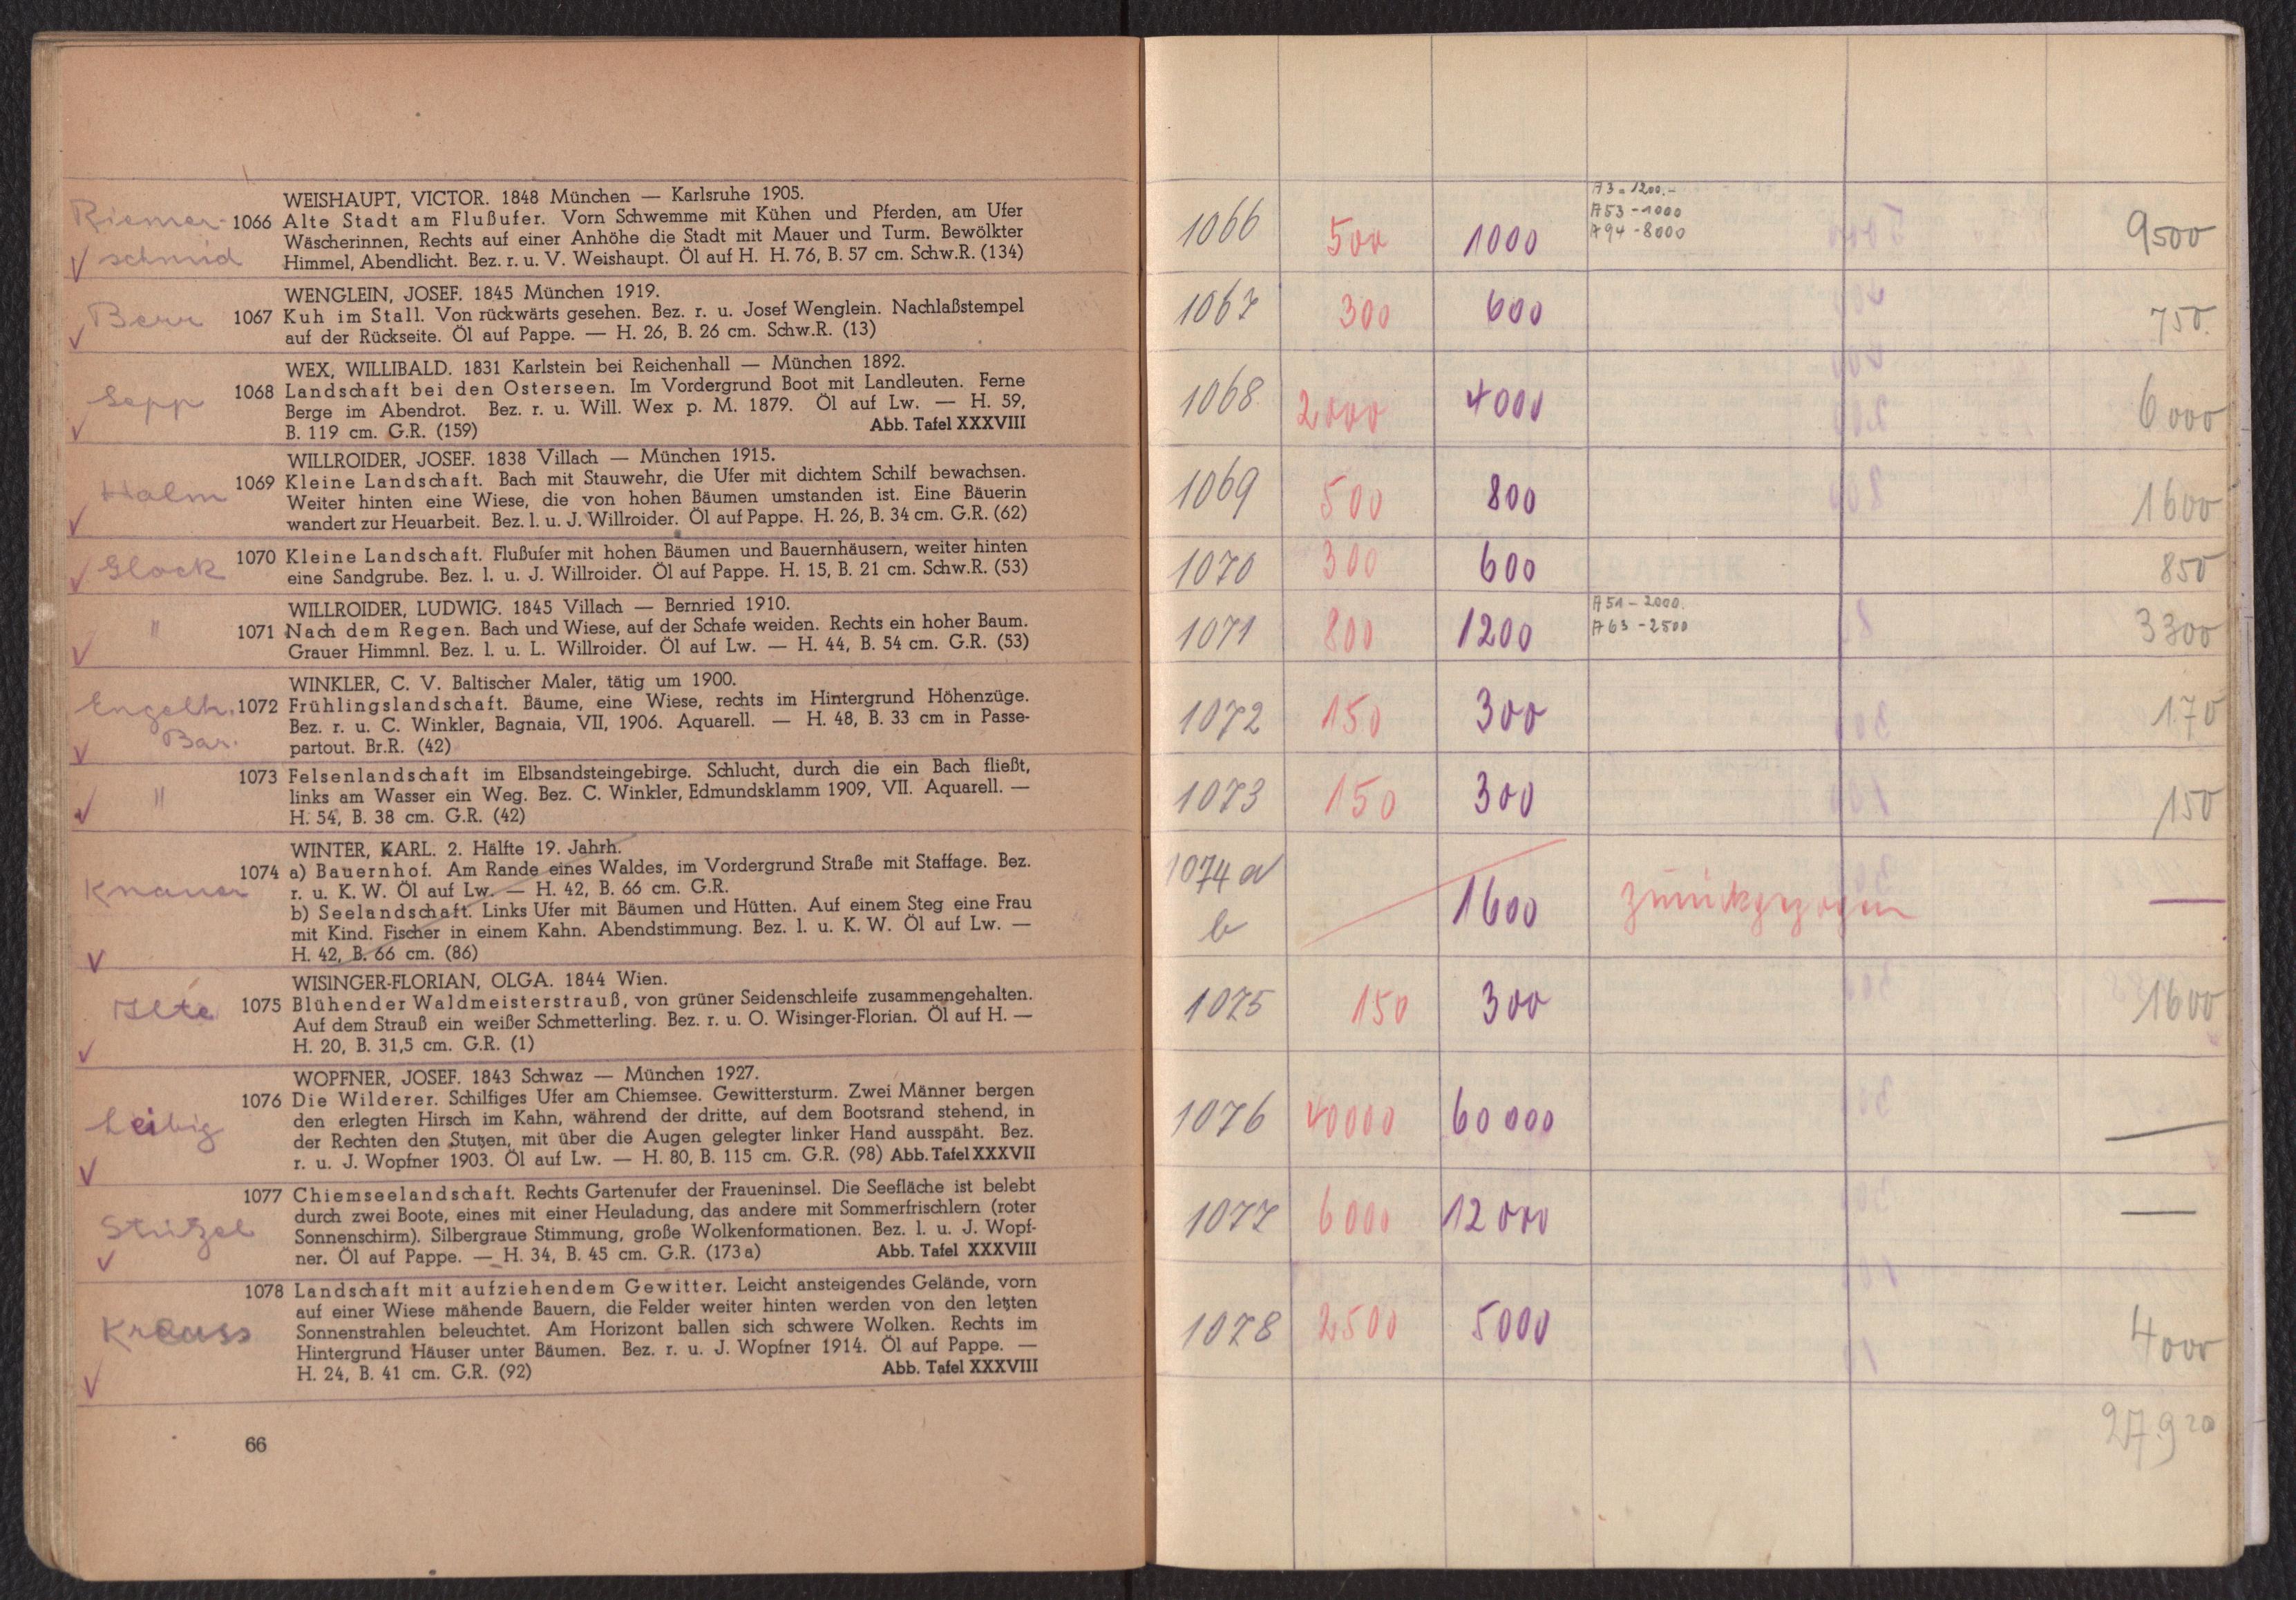 WEISHAUPT, VICTOR. 1848 München — Karlsruhe 1905.
Riemer- 1066 Alte Stadt am Flußufer. Vorn Schwemme mit Kühen und Pferden, am Ufer
Wäscherinnen, Rechts auf einer Anhöhe die Stadt mit Mauer und Turm. Bewölkter
schmid Himmel, Abendlicht. Bez. r. u. V. Weishaupt. Öl auf H. H. 76, B. 57 cm. Schw.R. (134)
WENGLEIN, JOSEF. 1845 München 1919.
Berr 1067 Kuh im Stall. Von rückwärts gesehen. Bez. r. u. Josef Wenglein. Nachlaßstempel
auf der Rückseite. Öl auf Pappe. — H. 26, B. 26 cm. Schw.R. (13)
WEX, WILLIBALD. 1831 Karlstein bei Reichenhall — München 1892.
Sepp 1068 Landschaft bei den Osterseen. Im Vordergrund Boot mit Landleuten. Ferne
Berge im Abendrot. Bez. r. u. Will. Wex p. M. 1879. Öl auf Lw. — H. 59,
B. 119 cm. G.R. (159) Abb. Tafel XXXVIII
WILLROIDER, JOSEF. 1838 Villach — München 1915.
Halm 1069 Kleine Landschaft. Bach mit Stauwehr, die Ufer mit dichtem Schilf bewachsen.
Weiter hinten eine Wiese, die von hohen Bäumen umstanden ist. Eine Bäuerin
wandert zur Heuarbeit. Bez. l. u. J. Willroider. Öl auf Pappe. H. 26, B. 34 cm. G.R. (62)
Glock 1070 Kleine Landschaft. Flußufer mit hohen Bäumen und Bauernhäusern, weiter hinten
eine Sandgrube. Bez. l. u. J. Willroider. Öl auf Pappe. H. 15, B. 21 cm. Schw.R. (53)
WILLROIDER, LUDWIG. 1845 Villach — Bernried 1910.
" 1071 Nach dem Regen. Bach und Wiese, auf der Schafe weiden. Rechts ein hoher Baum.
Grauer Himmnl. Bez. l. u. L. Willroider. Öl auf Lw. — H. 44, B. 54 cm. G.R. (53)
WINKLER, C. V. Baltischer Maler, tätig um 1900.
Engelh. 1072 Frühlingslandschaft. Bäume, eine Wiese, rechts im Hintergrund Höhenzüge.
Bar. Bez. r. u. C. Winkler, Bagnaia, VII, 1906. Aquarell. — H. 48, B. 33 cm in Passe-
partout. Br.R. (42)
1073 Felsenlandschaft im Elbsandsteingebirge. Schlucht, durch die ein Bach fließt,
" links am Wasser ein Weg. Bez. C. Winkler, Edmundsklamm 1909, VII. Aquarell. —
H. 54, B. 38 cm. G.R. (42)
WINTER, KARL. 2. Hälfte 19. Jahrh.
1074 a) Bauernhof. Am Rande eines Waldes, im Vordergrund Straße mit Staffage. Bez.
Knauer r. u. K. W. Öl auf Lw. — H. 42, B. 66 cm. G.R.
b) Seelandschaft. Links Ufer mit Bäumen und Hütten. Auf einem Steg eine Frau
mit Kind. Fischer in einem Kahn. Abendstimmung. Bez. l. u. K. W. Öl auf Lw. —
H. 42, B. 66 cm. (86)
WISINGER-FLORIAN, OLGA. 1844 Wien.
1075 Blühender Waldmeisterstrauß, von grüner Seidenschleife zusammengehalten.
Auf dem Strauß ein weißer Schmetterling. Bez. r. u. O. Wisinger-Florian. Öl auf H. —
H. 20, B. 31,5 cm. G.R. (1)
WOPFNER, JOSEF. 1843 Schwaz — München 1927.
1076 Die Wilderer. Schilfiges Ufer am Chiemsee. Gewittersturm. Zwei Männer bergen
Leibig den erlegten Hirsch im Kahn, während der dritte, auf dem Bootsrand stehend, in
der Rechten den Stutzen, mit über die Augen gelegter linker Hand ausspäht. Bez.
r. u. J. Wopfner 1903. Öl auf Lw. — H. 80, B. 115 cm. G.R. (98) Abb. Tafel XXXVII
1077 Chiemseelandschaft. Rechts Gartenufer der Fraueninsel. Die Seefläche ist belebt
durch zwei Boote, eines mit einer Heuladung, das andere mit Sommerfrischlern (roter
Stützel Sonnenschirm). Silbergraue Stimmung, große Wolkenformationen. Bez. l. u. J. Wopf-
ner. Öl auf Pappe. — H. 34, B. 45 cm. G.R. (173 a) Abb. Tafel XXXVIII
1078 Landschaft mit aufziehendem Gewitter. Leicht ansteigendes Gelände, vorn
auf einer Wiese mähende Bauern, die Felder weiter hinten werden von den letzten
Krauss Sonnenstrahlen beleuchtet. Am Horizont ballen sich schwere Wolken. Rechts im
Hintergrund Häuser unter Bäumen. Bez. r. u. J. Wopfner 1914. Öl auf Pappe. —
H. 24, B. 41 cm. G.R. (92) Abb. Tafel XXXVIII
66
A 3 = 1200.-
A 53 - 1000
A 94 - 8000
1066 500 1000 9500
1067 300 600 750.
1068 2000 4000 6000
1069 500 800 1600
1070 300 600 850
A 51 - 2000.
A 63 - 2500
1071 800 1200 3300
1072 150 300 170
1073 150 300 150
1074 a
b 1600 zurückgezogen —
1075 150 300 1600
1076 40000 60000 —
1077 6000 12000 —
1078 2500 5000 4000
27.920